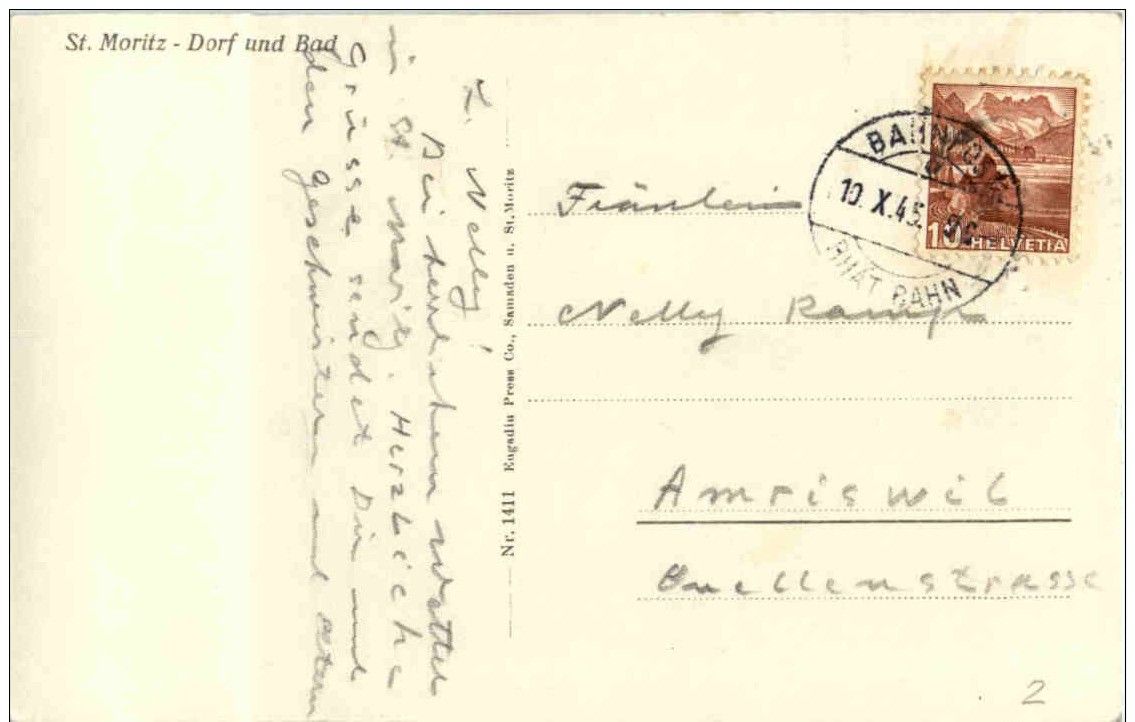 St. Moritz - Dorf und Bad
L. Nelly!
Bei herrlichem Wetter
in St. Moritz. Herzliche
Grüsse sendet Dir und
den Geschwistern und Eltern
Nr. 1411 Engadin Press Co., Samaden u. St. Moritz
BAHNPOST
10.X.45.
RHÄT. BAHN
10 HELVETIA
Fräulein
Nelly
Amriswil
Quellenstrasse
2